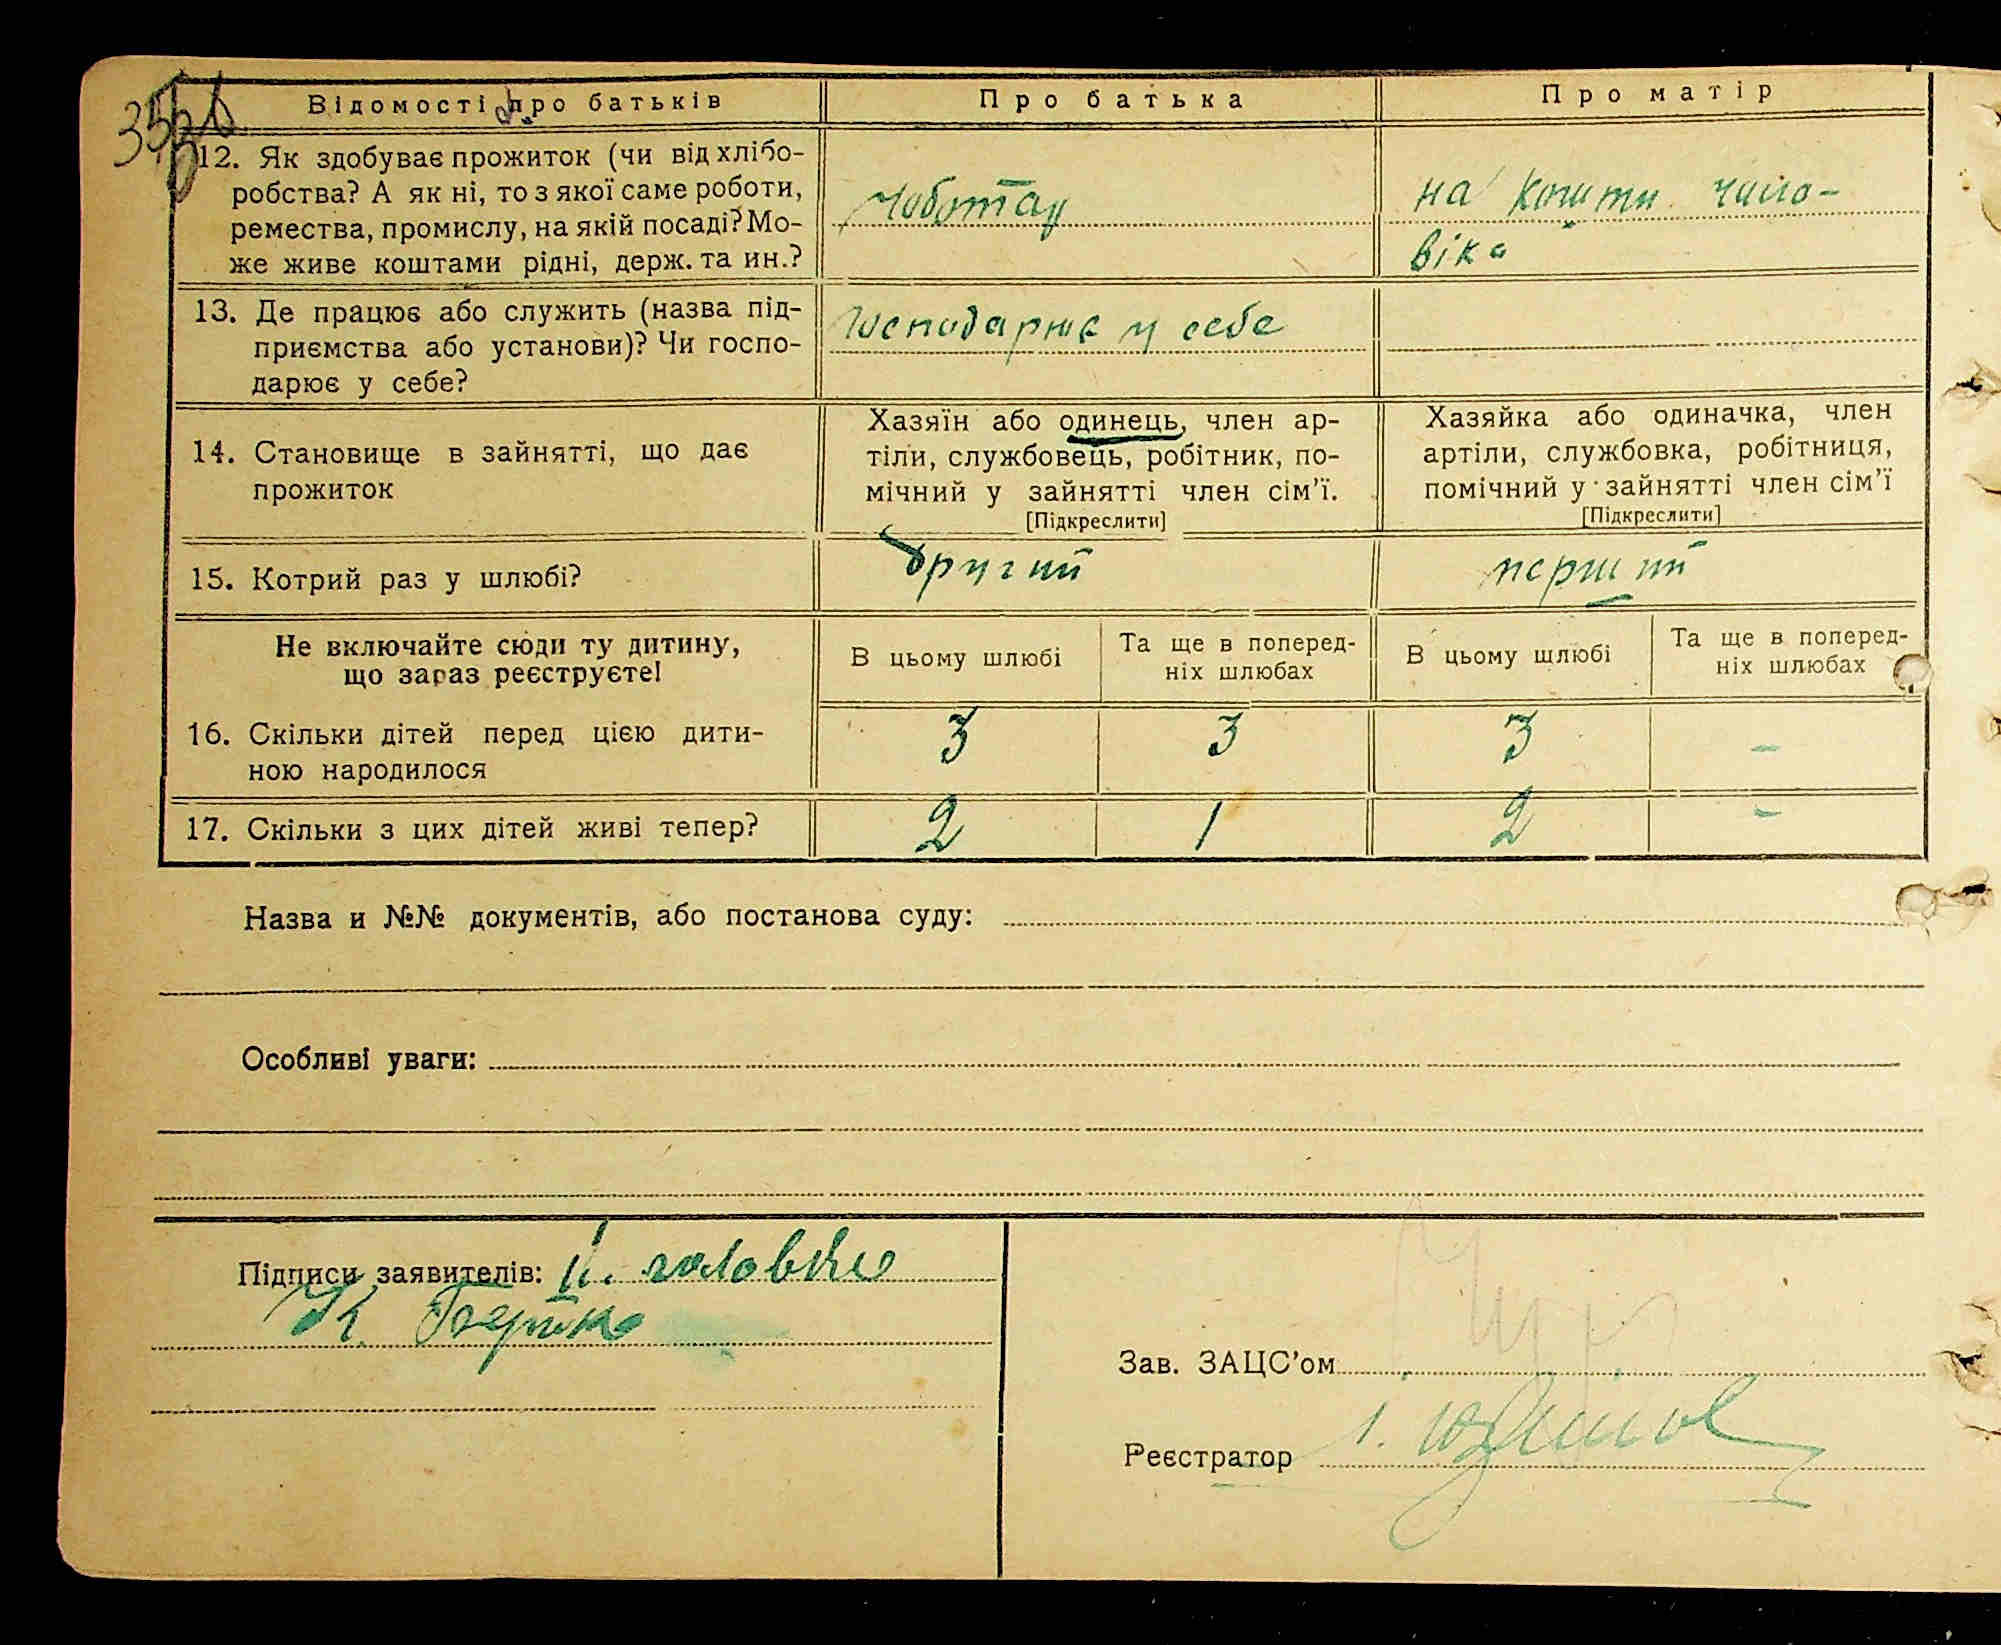 Відомості про батьків
Про батька
Про матір
12. Як здобуває прожиток (чи від хлібо-
робства? А як ні, то з якої саме роботи,
ремества, промислу, на якій посаді? Мо-
же живе коштами рідні, держ. та ин.?
Чоботар
на кошти чоло-
віка
13. Де працює або служить (назва під-
приємства або установи)? Чи госпо-
дарює у себе?
Господарює у себе
14. Становище в зайнятті, що дає
прожиток
Хазяїн або одинець, член ар-
тіли, службовець, робітник, по-
мічний у зайнятті член сім'ї.
[Підкреслити]
Хазяйка або одиначка, член
артіли, службовка, робітниця,
помічний у зайнятті член сім'ї
[Підкреслити]
15. Котрий раз у шлюбі?
другий
перший
Не включайте сюди ту дитину,
що зараз реєструєте!
В цьому шлюбі
Та ще в поперед-
ніх шлюбах
В цьому шлюбі
Та ще в поперед-
ніх шлюбах
16. Скільки дітей перед цією дити-
ною народилося
3
3
3
-
17. Скільки з цих дітей живі тепер?
2
1
2
-
Назва и №№ документів, або постанова суду:
Особливі уваги:
Підписи заявителів:
К.
Зав. ЗАЦС'ом
Реєстратор